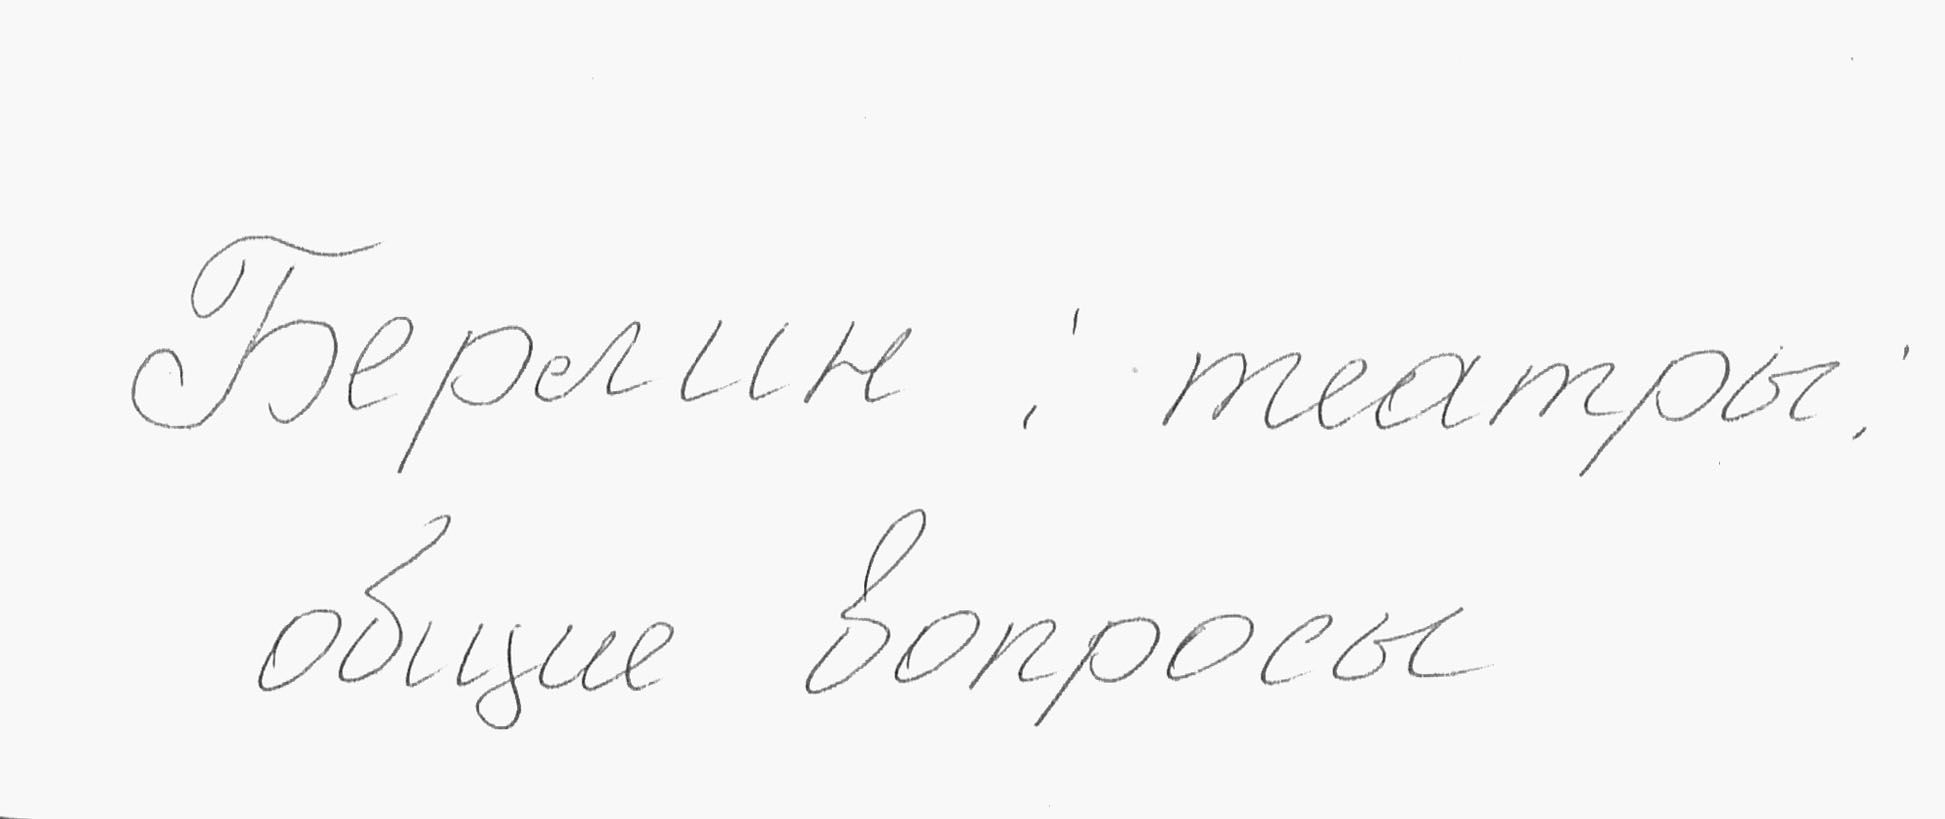 Берлин : театры :
общие вопросы